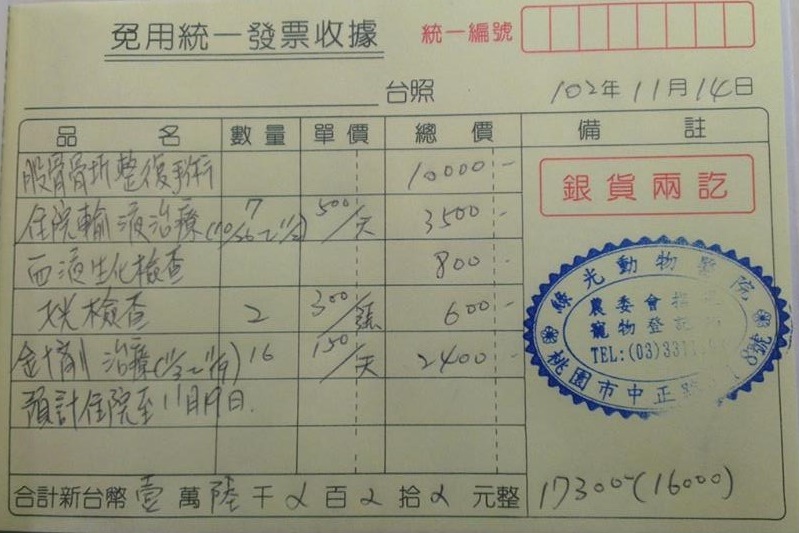 免用統一發票收據
統一編號
台照
102年11月14日
品名 數量 單價 總價 備註
股骨骨折整復手術 10000-
住院輸液治療(10/26~11/2) 7 500/天 3500-
血液生化檢查 800-
X光檢查 2 300/張 600-
針劑治療(11/3~11/19) 16 150/天 2400-
預計住院至11月19日.
銀貨兩訖
綠光動物醫院
農委會
寵物登記
TEL:(03)331
桃園市中正路 號
合計新台幣壹萬陸千 百 拾 元整 17300-(16000)